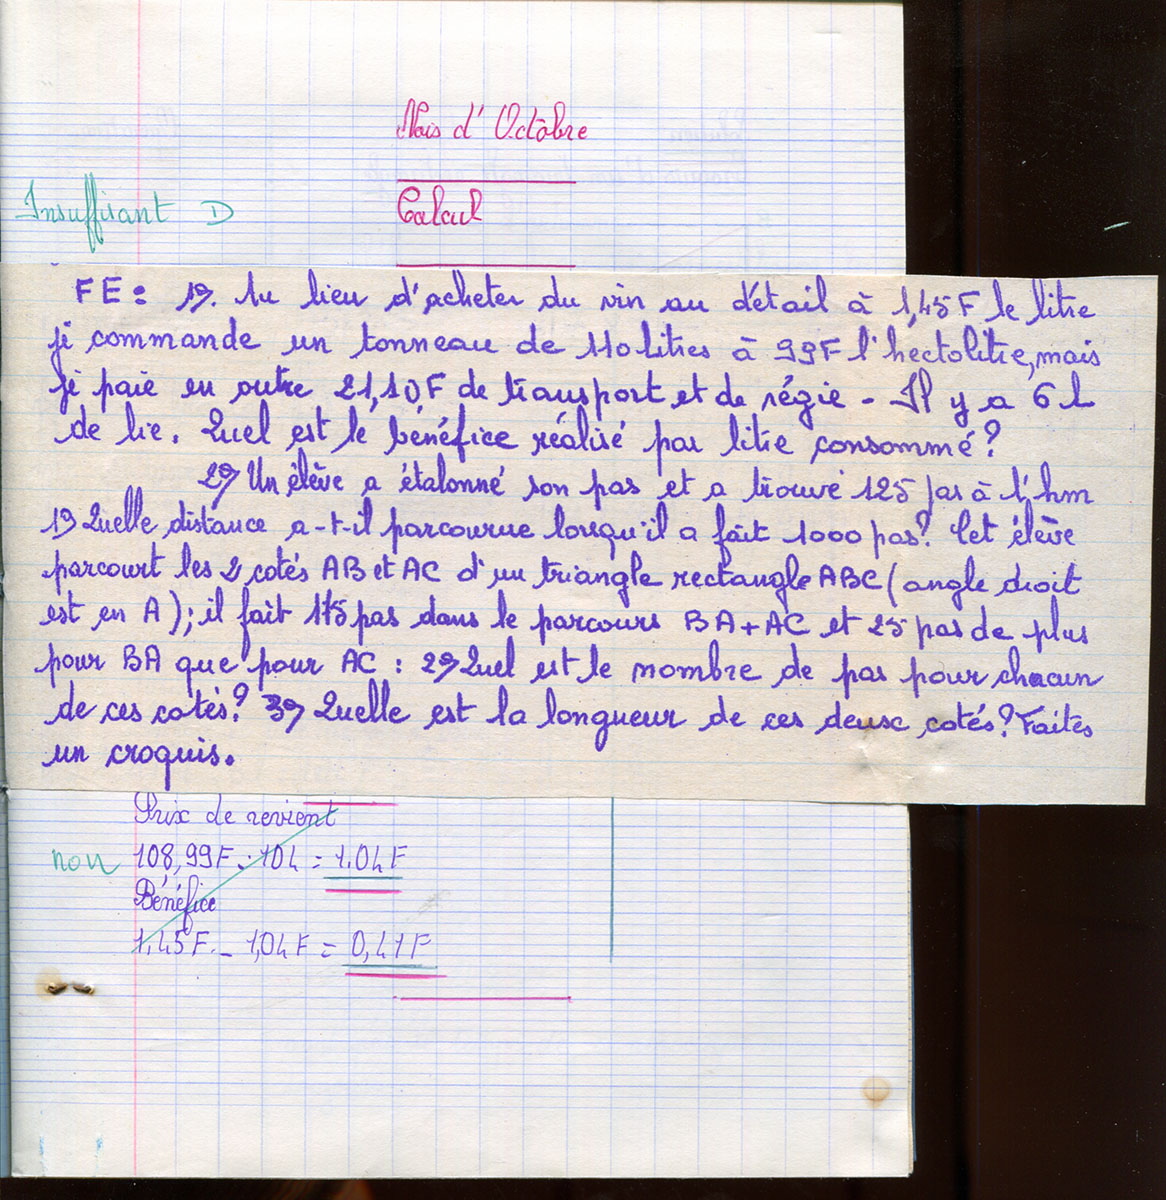 Mois d'Octobre
Calcul
Insuffisant D
FE: 1°) Au lieu d'acheter du vin au détail à 1,45F le litre
je commande un tonneau de 110 litres à 99F l'hectolitre, mais
je paie en outre 21,10F de transport et de régie - Il y a 6 L
de lie. Quel est le bénéfice réalisé par litre consommé?
2°) Un élève a étalonné son pas et a trouvé 125 pas à l'hm
1°) Quelle distance a-t-il parcourue lorsqu'il a fait 1000 pas? Cet élève
parcourt les 2 cotés AB et AC d'un triangle rectangle ABC (angle droit
est en A); il fait 175 pas dans le parcours BA+AC et 25 pas de plus
pour BA que pour AC : 2°) Quel est le nombre de pas pour chacun
de ces cotés? 3°) Quelle est la longueur de ces deux cotés? Faites
un croquis.
Prix de revient
non 108,99F : 104 = 1,04F
Bénéfice
1,45F - 1,04F = 0,41F